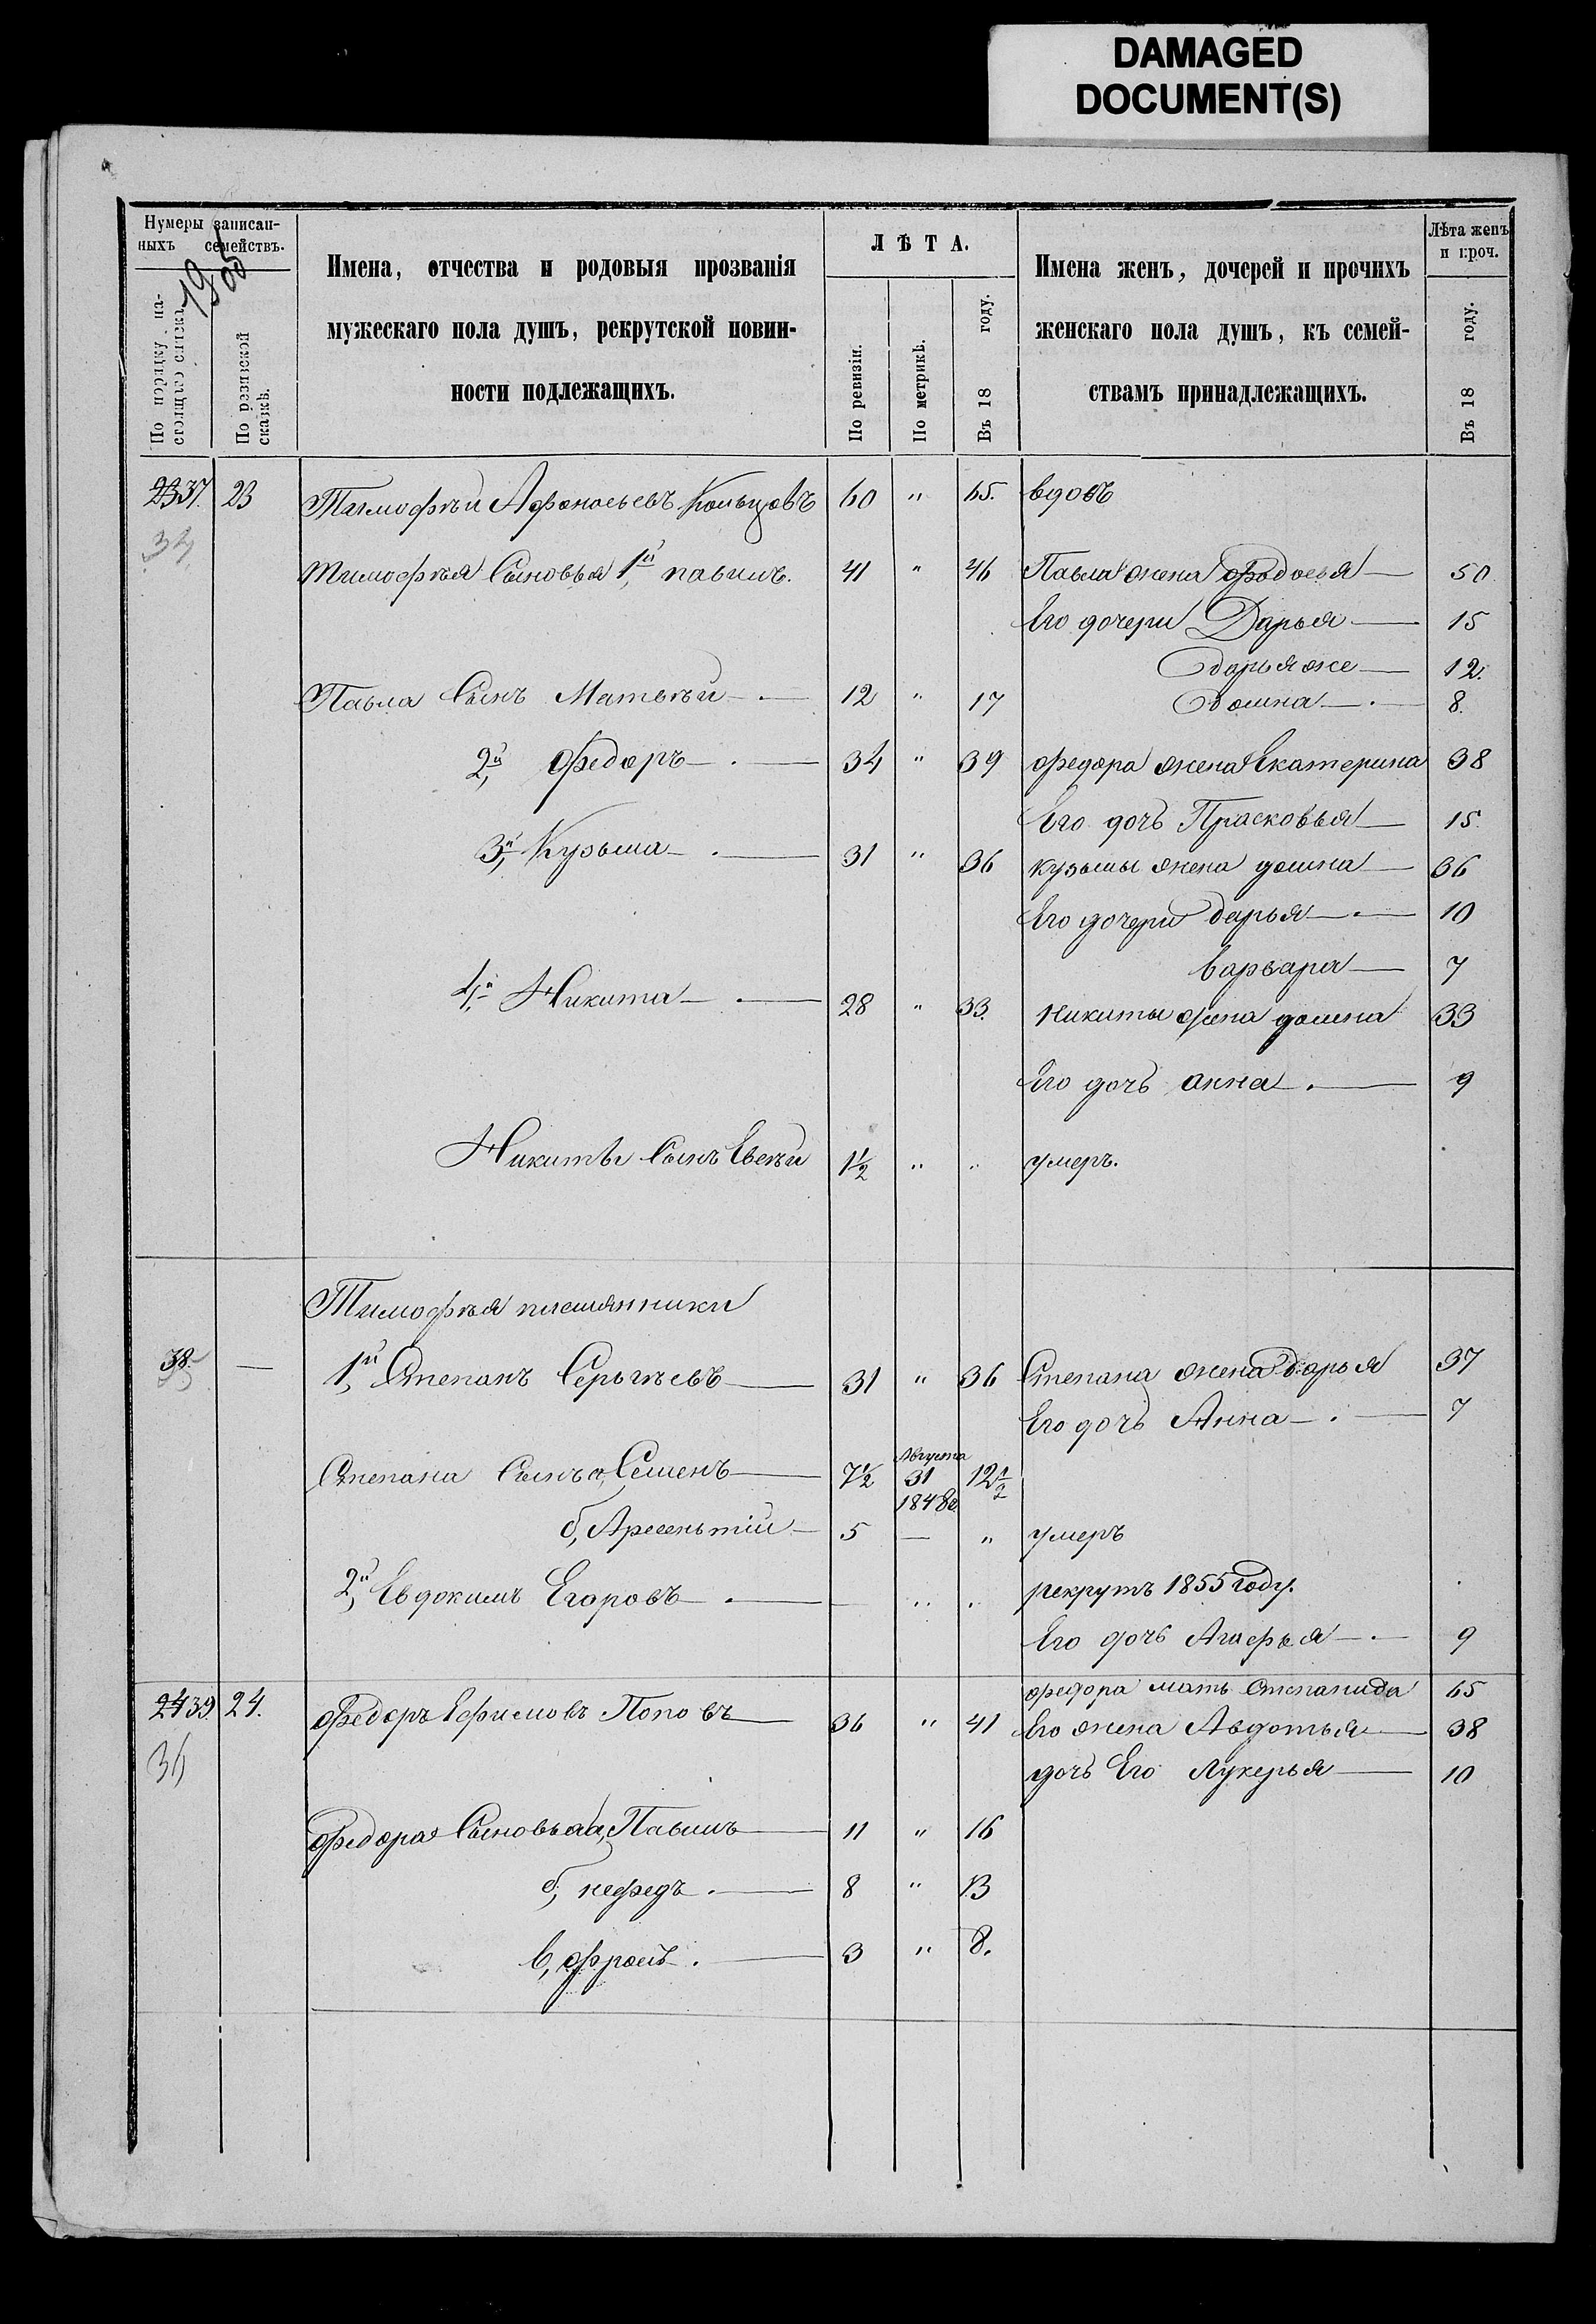 DAMAGED
DOCUMENT(S)
Нумеры записан-
ныхъ семействъ.
По порядку на-
стоящаго списка.
По ревизской
сказкѣ.
Имена, отчества и родовыя прозванія
мужескаго пола душъ, рекрутской повин-
ности подлежащихъ.
ЛѢТА.
По ревизіи.
По метрикѣ.
Въ 18 году.
Имена женъ, дочерей и прочихъ
женскаго пола душъ, къ семей-
ствамъ принадлежащихъ.
Лѣта женъ
и проч.
Въ 18 году.
23 37. 23 Тимофѣй Афонасьевъ Кольцовъ 60 " 65. вдовъ
34
тимофѣя Сыновья 1й павилъ. 41 " 46 Павла жена Фодосья 50
Его дочери Дарья 15
дарья же 12.
Павла Сынъ Матвѣй 12 " 17 домна 8.
2й, Федоръ 34 " 39 федора жена Екатерина 38
Его дочь Прасковья 15.
3й, Кузьма 31 " 36 кузьмы жена домна 36
Его дочери дарья 10
варвара 7
4й, Никита 28 " 33. Никиты жена домна 33
Его дочь анна 9
Никиты Сынъ Евсѣй 1½ " " умеръ.
Тимофѣя племянники
38. — 1й, Степанъ Сергѣевъ 31 " 36 Степана жена дарья 37
35
Его дочь Анна 7
Степана Сынъ а, Семенъ 7½ Августа 31 1848 12½
б, Арсентій 5 — " умеръ
2й, Евдокимъ Егоровъ — " " рекрутъ 1855 году.
Его дочь Агафья 9
федора мать Степанида 65
24 39. 24. Федоръ Ефимовъ Поповъ 36 " 41 Его жена Авдотья 38
36
дочь Его Лукерья 10
Федора Сыновья а, Павилъ 11 " 16
б, нефедъ 8 " 13
в, фролъ 3 " 8.